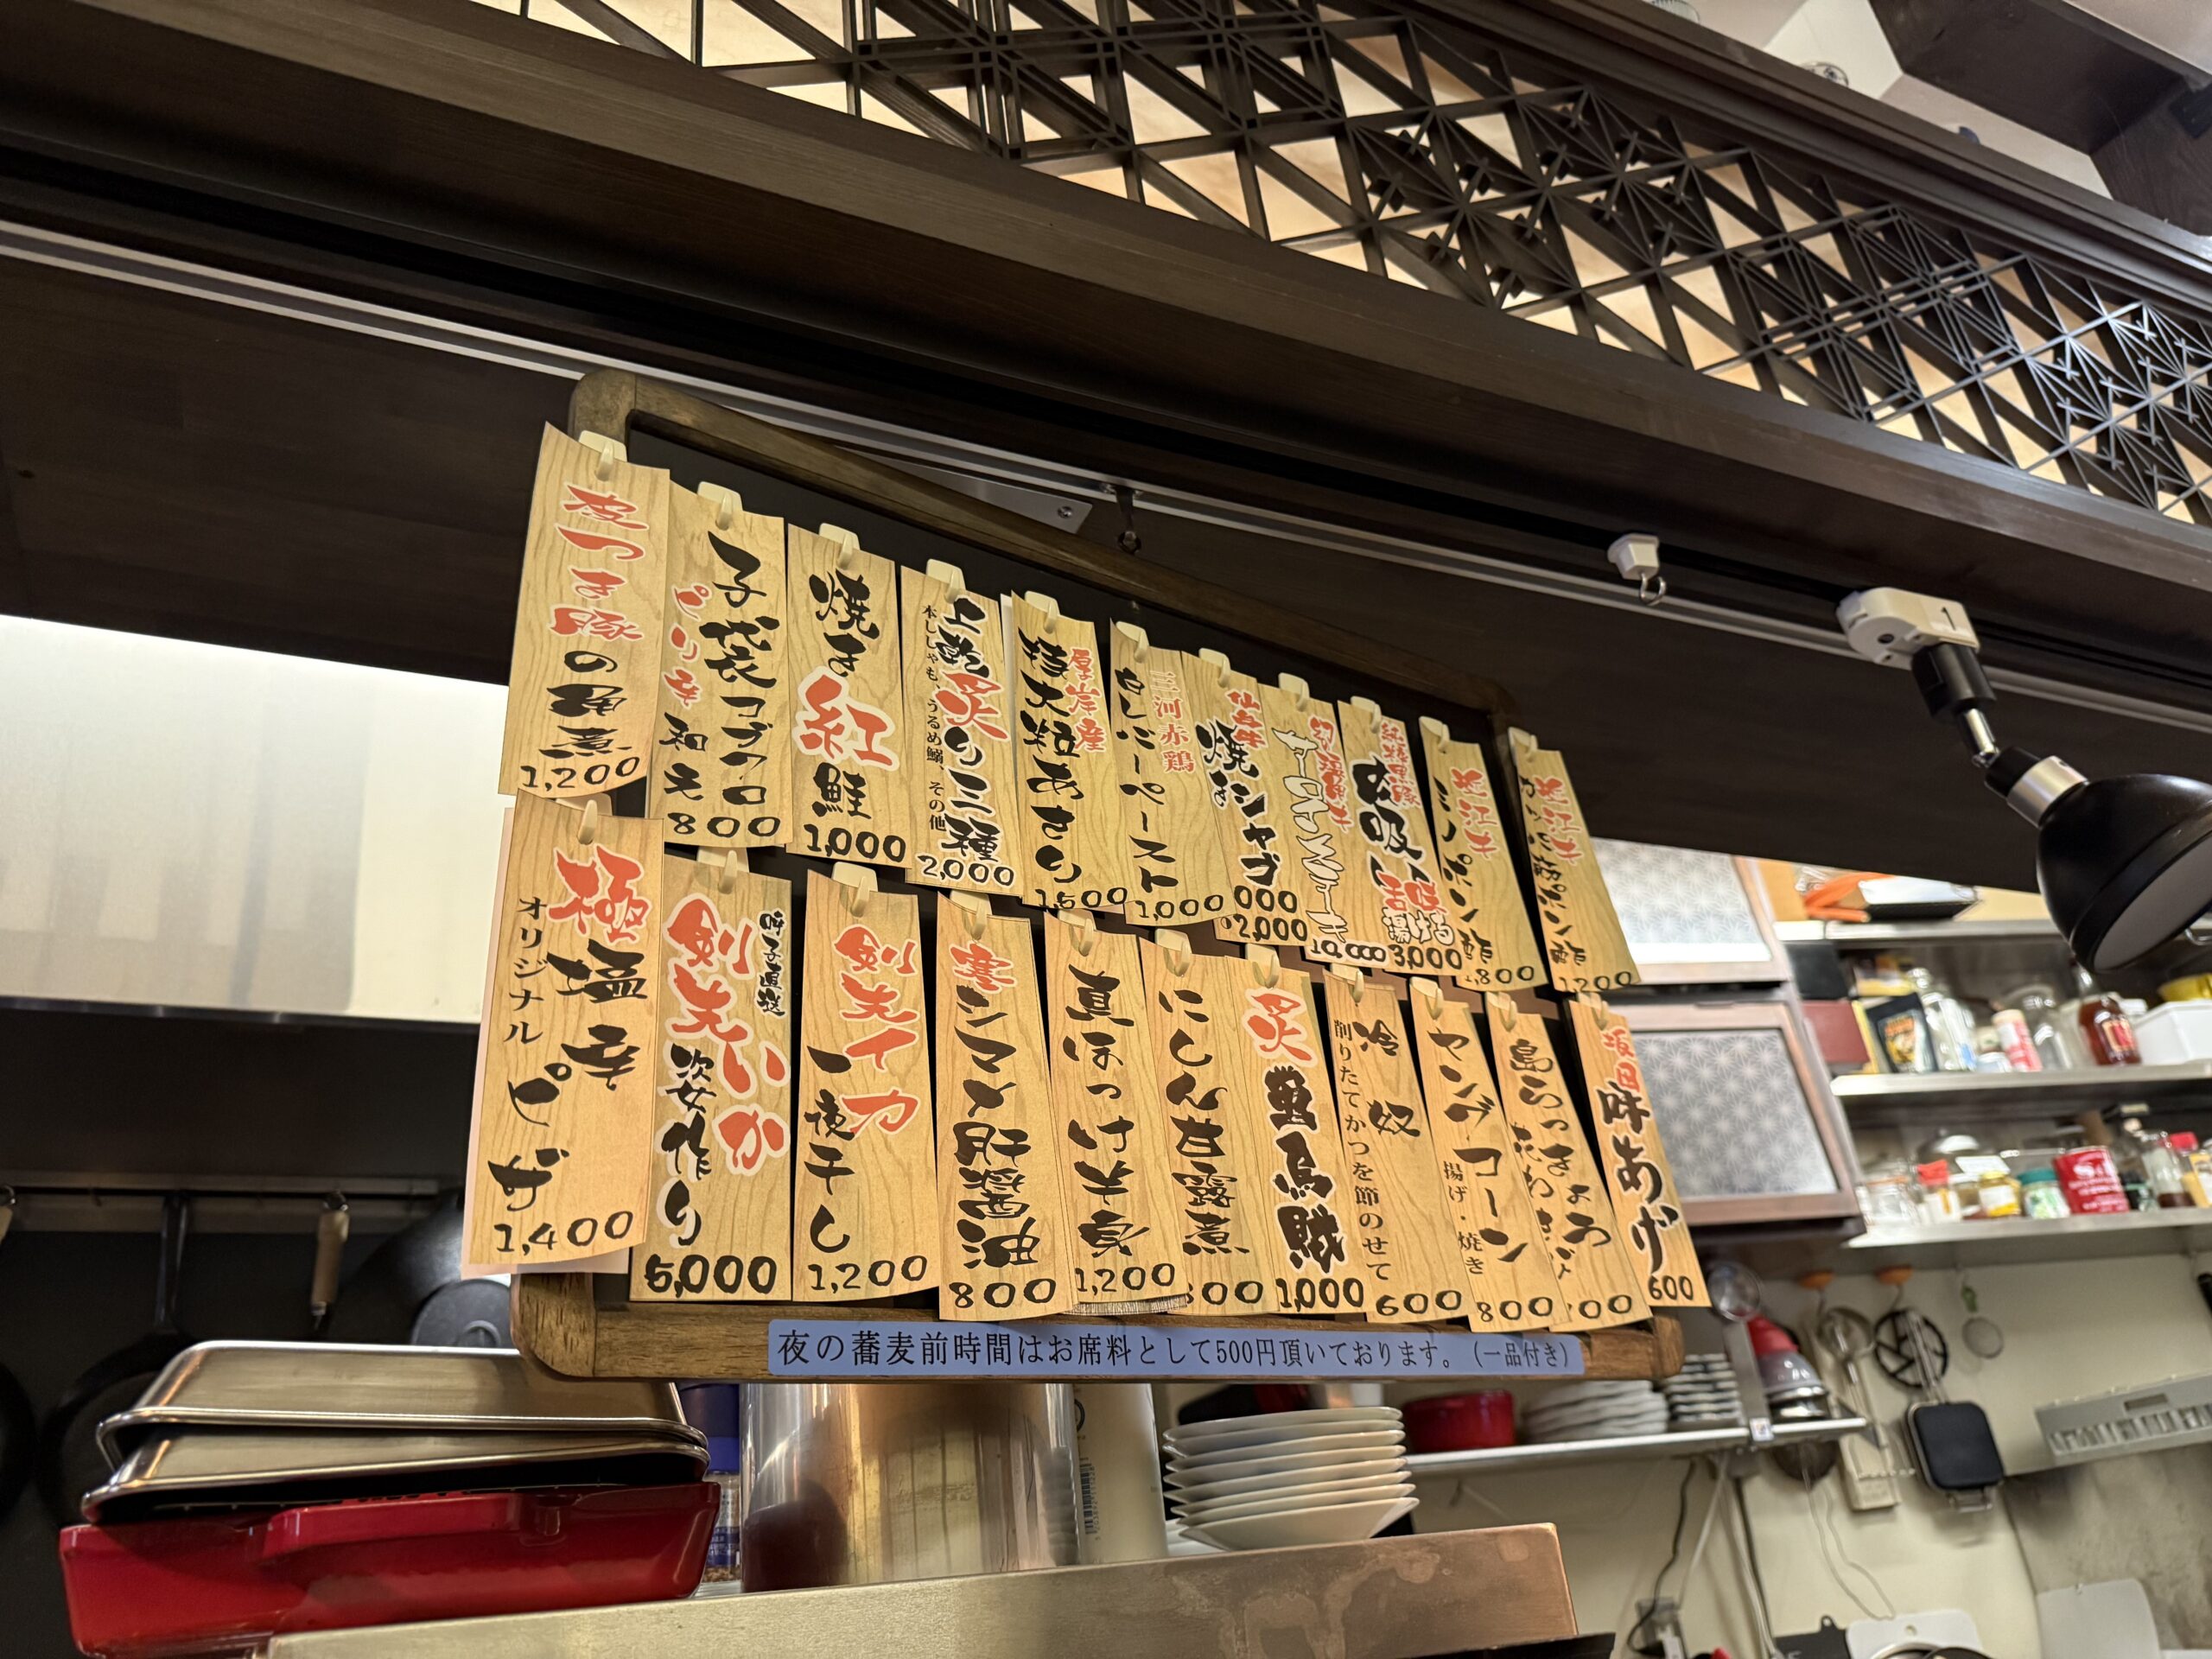 皮つき豚の角煮
1,200
子袋コブクロ
ピリ辛和え
800
焼き紅鮭
1,000
上乾炙り三種
本ししゃも、うるめ鰯、その他
2,000
厚岸産
特大粒あさり
1,500
三河赤鶏
白レバーペースト
1,000
仙台牛
焼きシャブ
2,000
サロインステーキ
10,000
3,000
近江牛
ミノポン酢
800
近江牛
ポン酢
1,200
極塩辛ピザ
オリジナル
1,400
呼子直送
剣先いか姿作り
5,000
剣先イカ
一夜干し
1,200
寒シマメ肝醤油
800
真ほっけ半身
1,200
にしん甘露煮
炙墨烏賊
1,000
冷奴
削りたてかつを節のせて
600
ヤングコーン
揚げ・焼き
800
島らっきょう
あげ
600
夜の蕎麦前時間はお席料として500円頂いております。(一品付き)
1